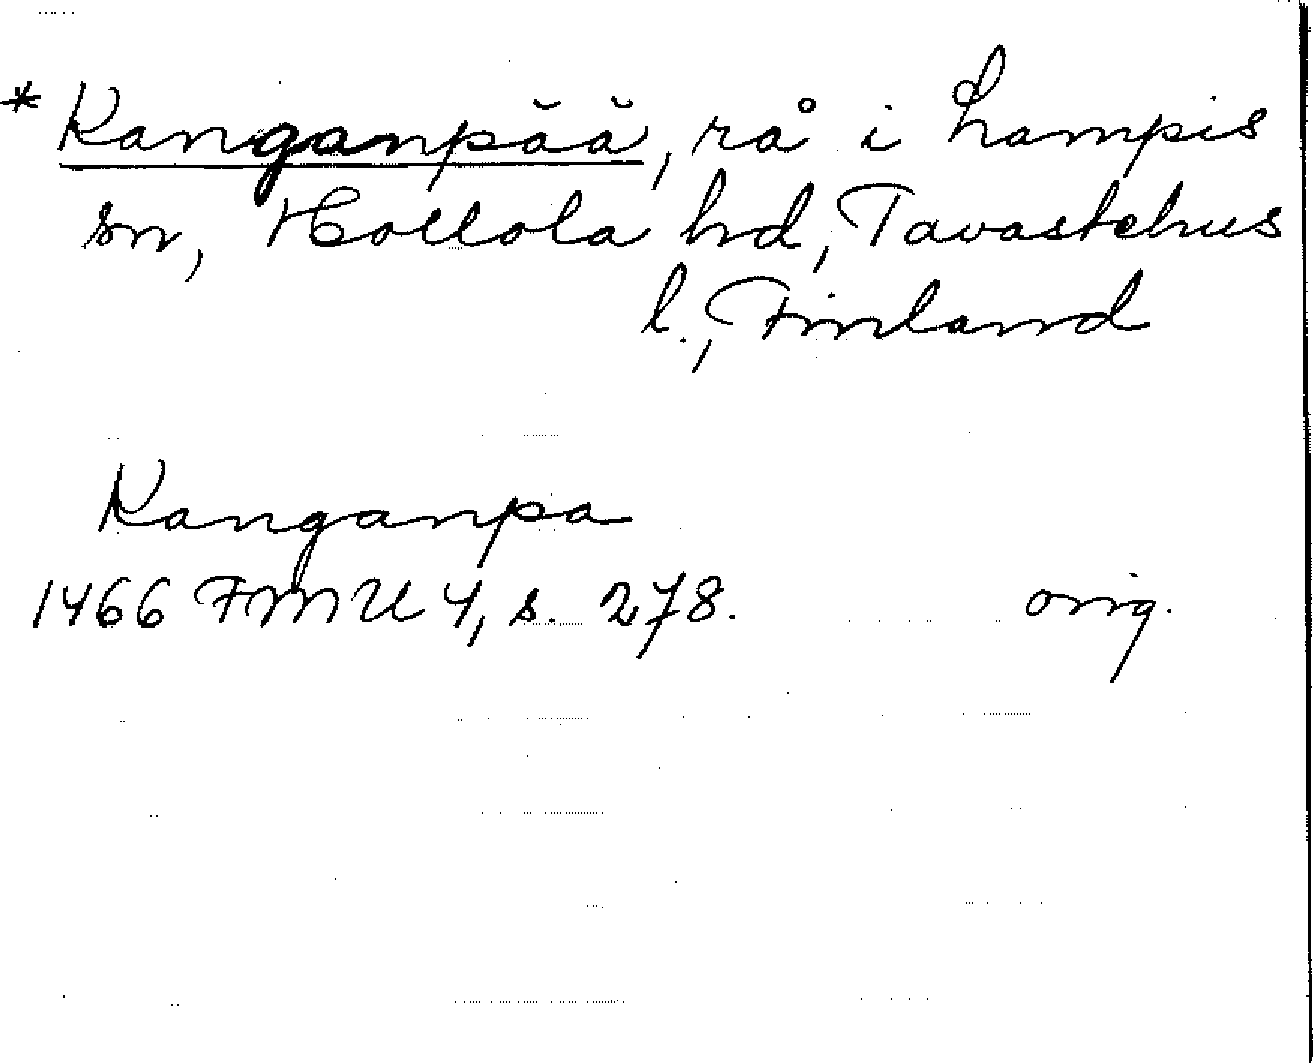 * Kanganpää, rå i Lampis
sn, Hollola hd, Tavastehus
l., Finland
Kanganpa
1466 FMU 4, s. 278. orig.